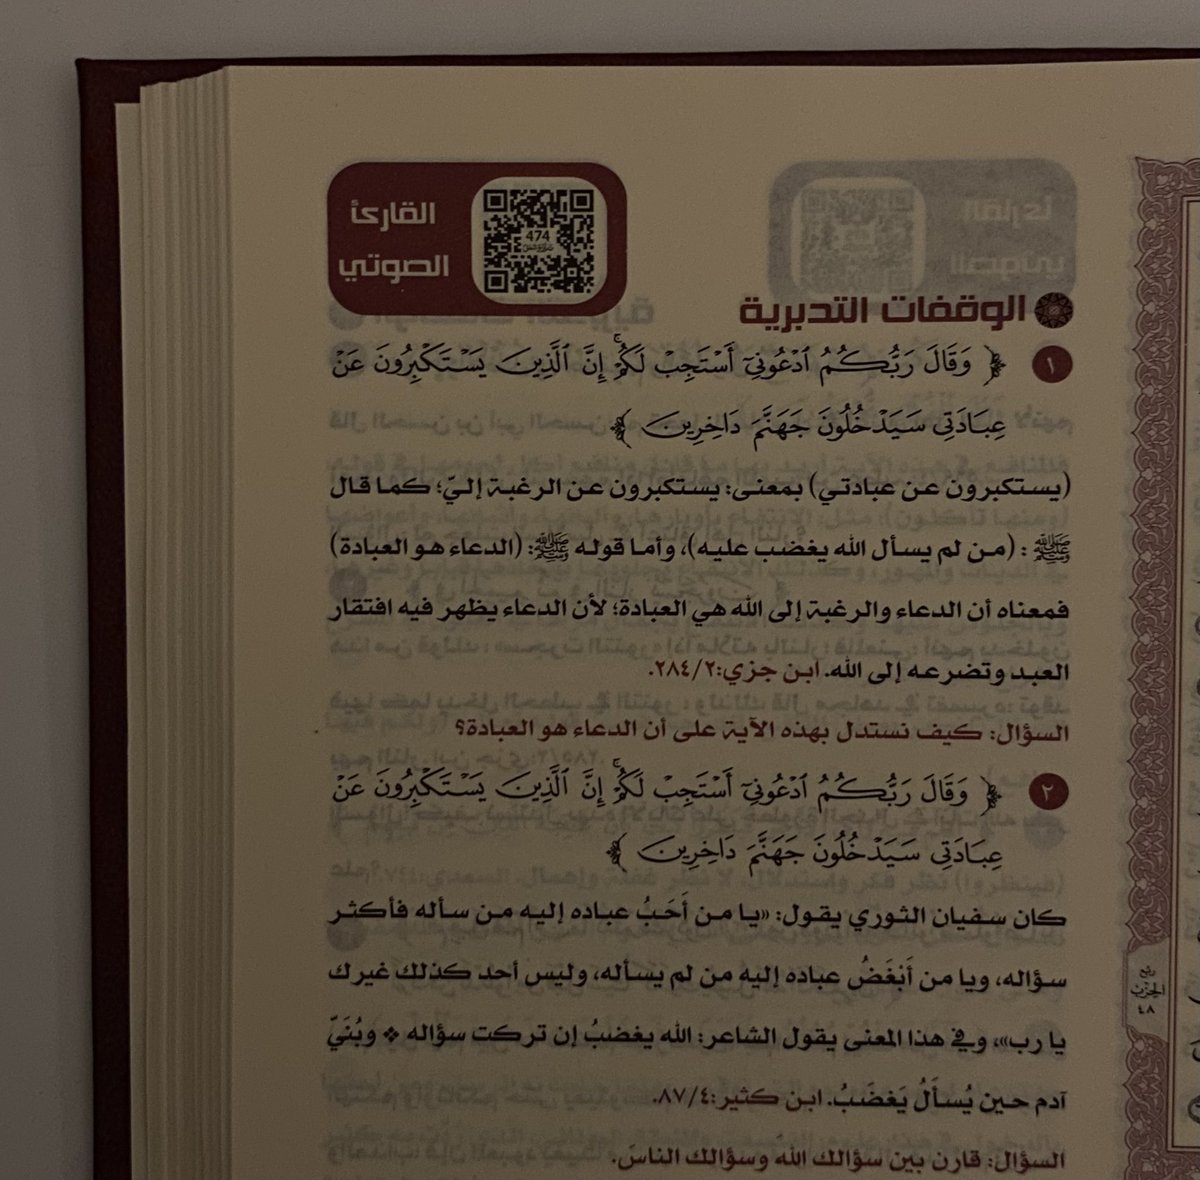 القارئ
الصوتي
474
الوقفات التدبرية
١ ﴿ وَقَالَ رَبُّكُمُ ٱدْعُونِىٓ أَسْتَجِبْ لَكُمْ ۚ إِنَّ ٱلَّذِينَ يَسْتَكْبِرُونَ عَنْ
عِبَادَتِى سَيَدْخُلُونَ جَهَنَّمَ دَاخِرِينَ ﴾
(يستكبرون عن عبادتي) بمعنى: يستكبرون عن الرغبة إليّ؛ كما قال
ﷺ : (من لم يسأل الله يغضب عليه)، وأما قوله ﷺ: (الدعاء هو العبادة)
فمعناه أن الدعاء والرغبة إلى الله هي العبادة؛ لأن الدعاء يظهر فيه افتقار
العبد وتضرعه إلى الله. ابن جزي:٢٨٤/٢.
السؤال: كيف نستدل بهذه الآية على أن الدعاء هو العبادة؟
٢ ﴿ وَقَالَ رَبُّكُمُ ٱدْعُونِىٓ أَسْتَجِبْ لَكُمْ ۚ إِنَّ ٱلَّذِينَ يَسْتَكْبِرُونَ عَنْ
عِبَادَتِى سَيَدْخُلُونَ جَهَنَّمَ دَاخِرِينَ ﴾
كان سفيان الثوري يقول: «يا من أَحَبُّ عباده إليه من سأله فأكثر
سؤاله، ويا من أَبْغَضُ عباده إليه من لم يسأله، وليس أحد كذلك غيرك
يا رب»، وفي هذا المعنى يقول الشاعر: الله يغضبُ إن تركت سؤاله ❖ وبُنَيّ
آدم حين يُسأَلُ يَغضَبُ. ابن كثير:٨٧/٤.
السؤال: قارن بين سؤالك الله وسؤالك الناسَ.
ربع
الحزب
٤٨